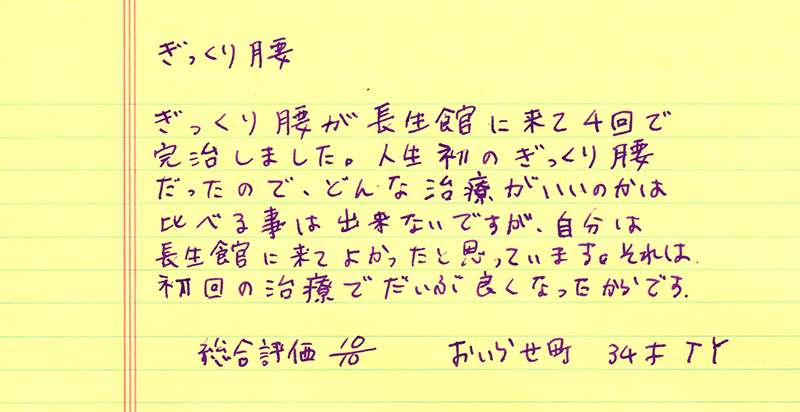 ぎっくり腰
ぎっくり腰が長生館に来て4回で
完治しました。人生初のぎっくり腰
だったので、どんな治療がいいのかは
比べる事は出来ないですが、自分は
長生館に来てよかったと思っています。それは
初回の治療でだいぶ良くなったからです.
総合評価 10/10 おいらせ町 34才 TY